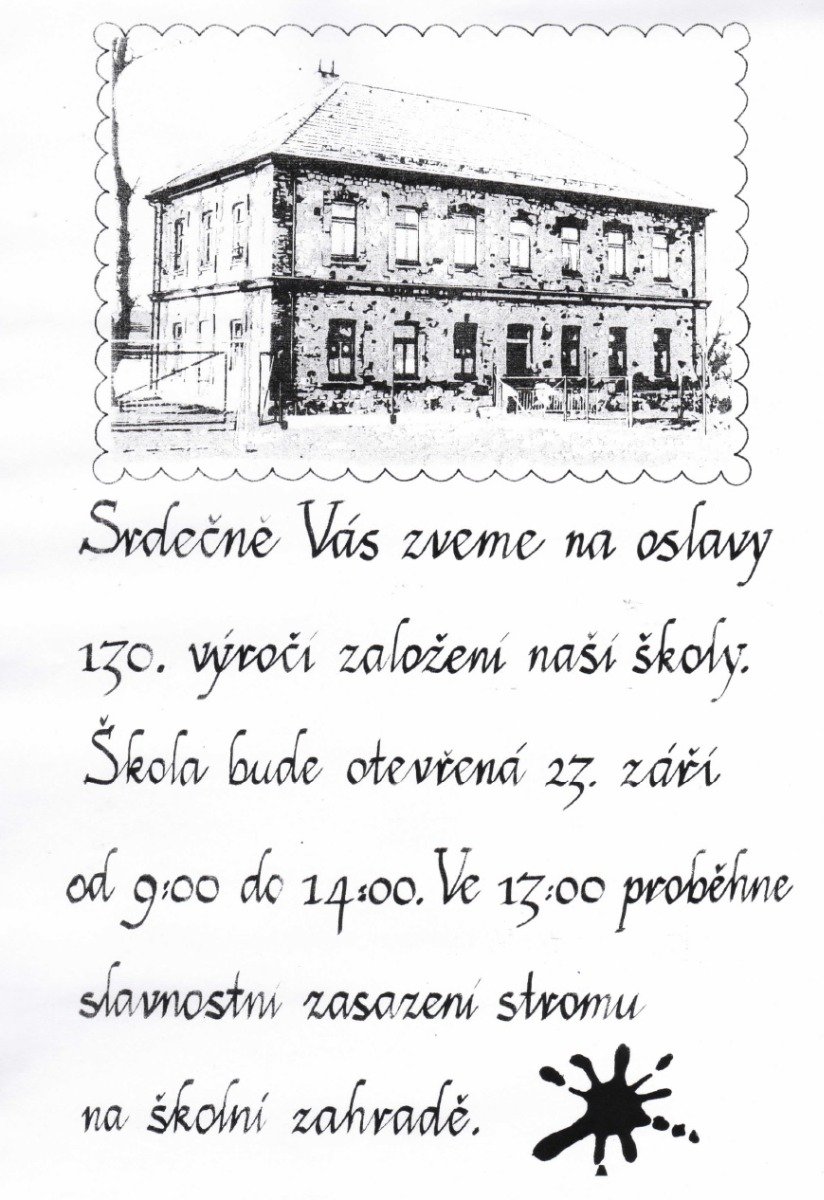 Srdečně Vás zveme na oslavy
130. výročí založení naší školy.
Škola bude otevřená 23. září
od 9:00 do 14:00. Ve 13:00 proběhne
slavnostní zasazení stromu
na školní zahradě.